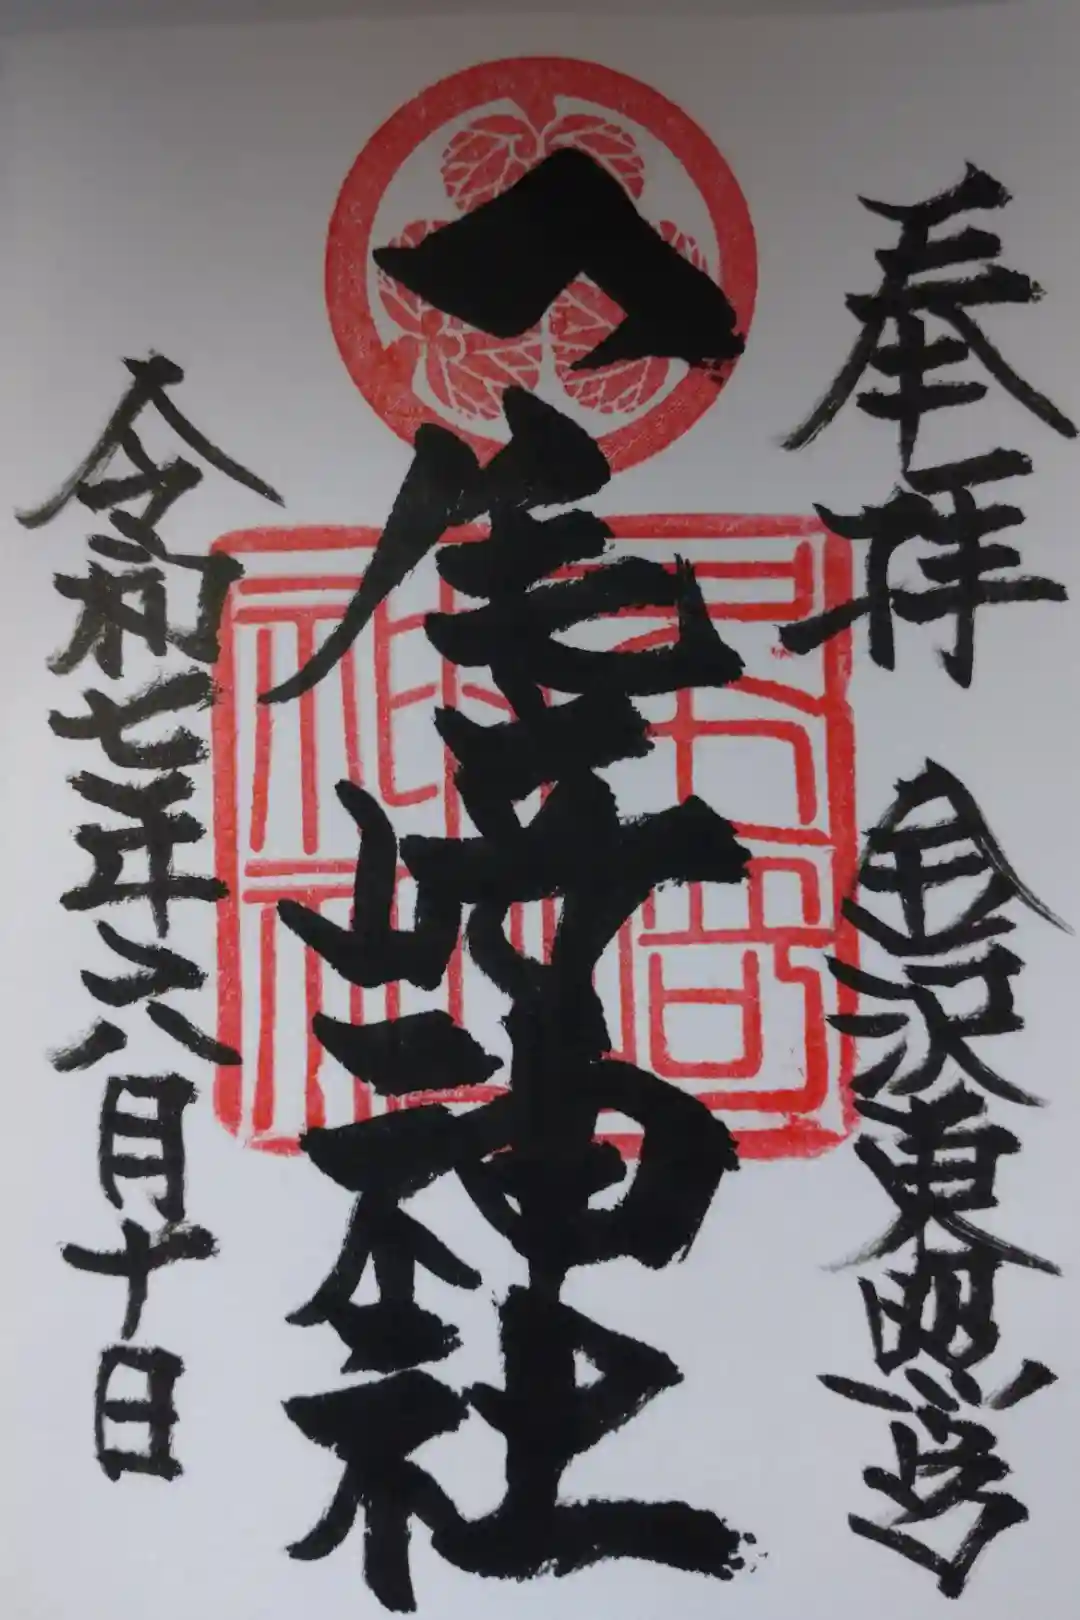 奉拝 金沢東照宮
尾崎神社
令和七年六月十日
尾崎神社